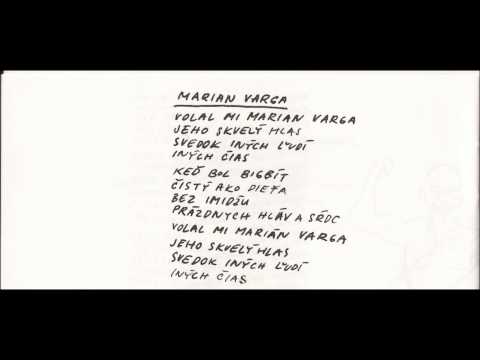 MARIAN VARGA
VOLAL MI MARIAN VARGA
JEHO SKVELÝ HLAS
SVEDOK INÝCH ĽUDÍ
INÝCH ČIAS
KEĎ BOL BIGBÍT
ČISTÝ AKO DIEŤA
BEZ IMIDŽU
PRÁZDNYCH HLÁV A SŔDC
VOLAL MI MARIÁN VARGA
JEHO SKVELÝ HLAS
SVEDOK INÝCH ĽUDÍ
INÝCH ČIAS